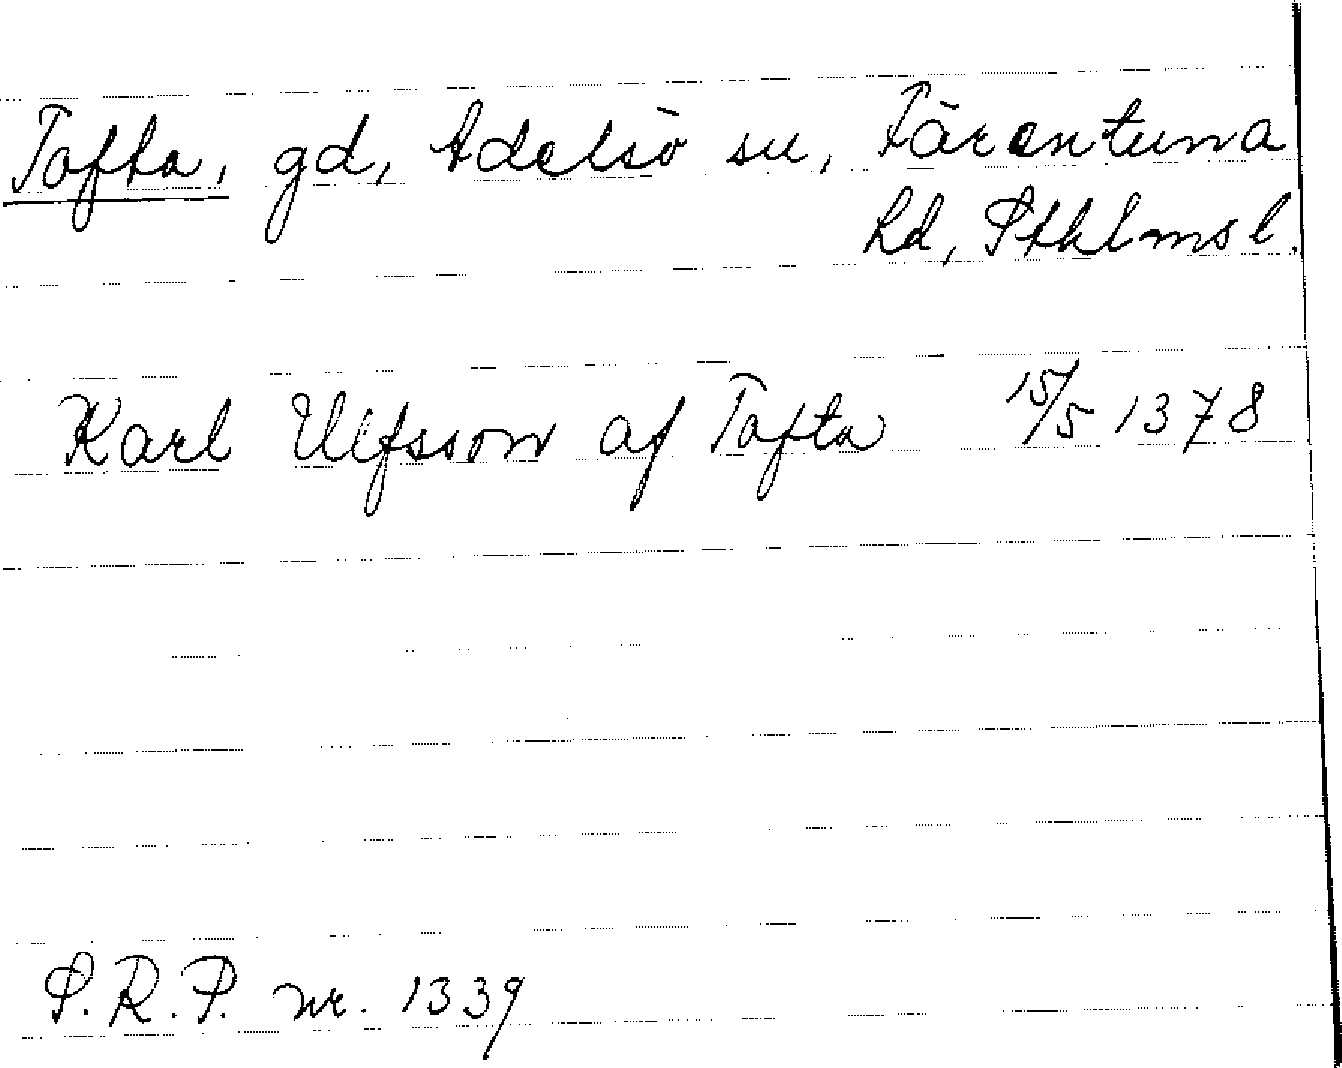 Tofta, gd, Adelsö sn, Färentuna
hd, Sthlmsl.
Karl Ulfsson af Tofta 15/5 1378
S.R.P. nr. 1339